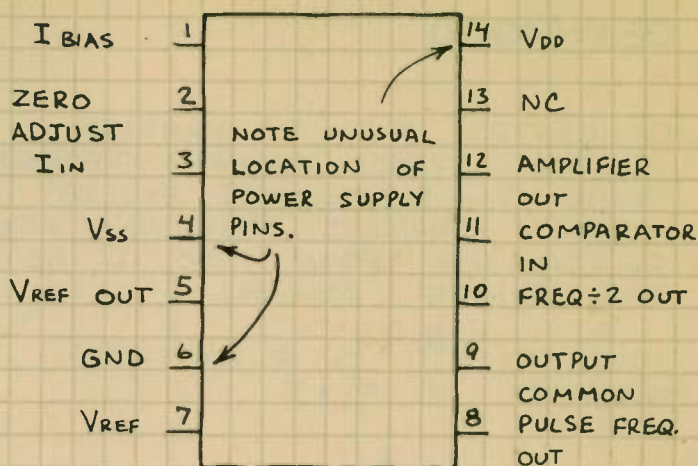 I BIAS 1
ZERO 2
ADJUST
I IN 3
VSS 4
VREF OUT 5
GND 6
VREF 7
NOTE UNUSUAL
LOCATION OF
POWER SUPPLY
PINS.
14 VDD
13 NC
12 AMPLIFIER
OUT
11 COMPARATOR
IN
10 FREQ÷2 OUT
9 OUTPUT
COMMON
8 PULSE FREQ.
OUT